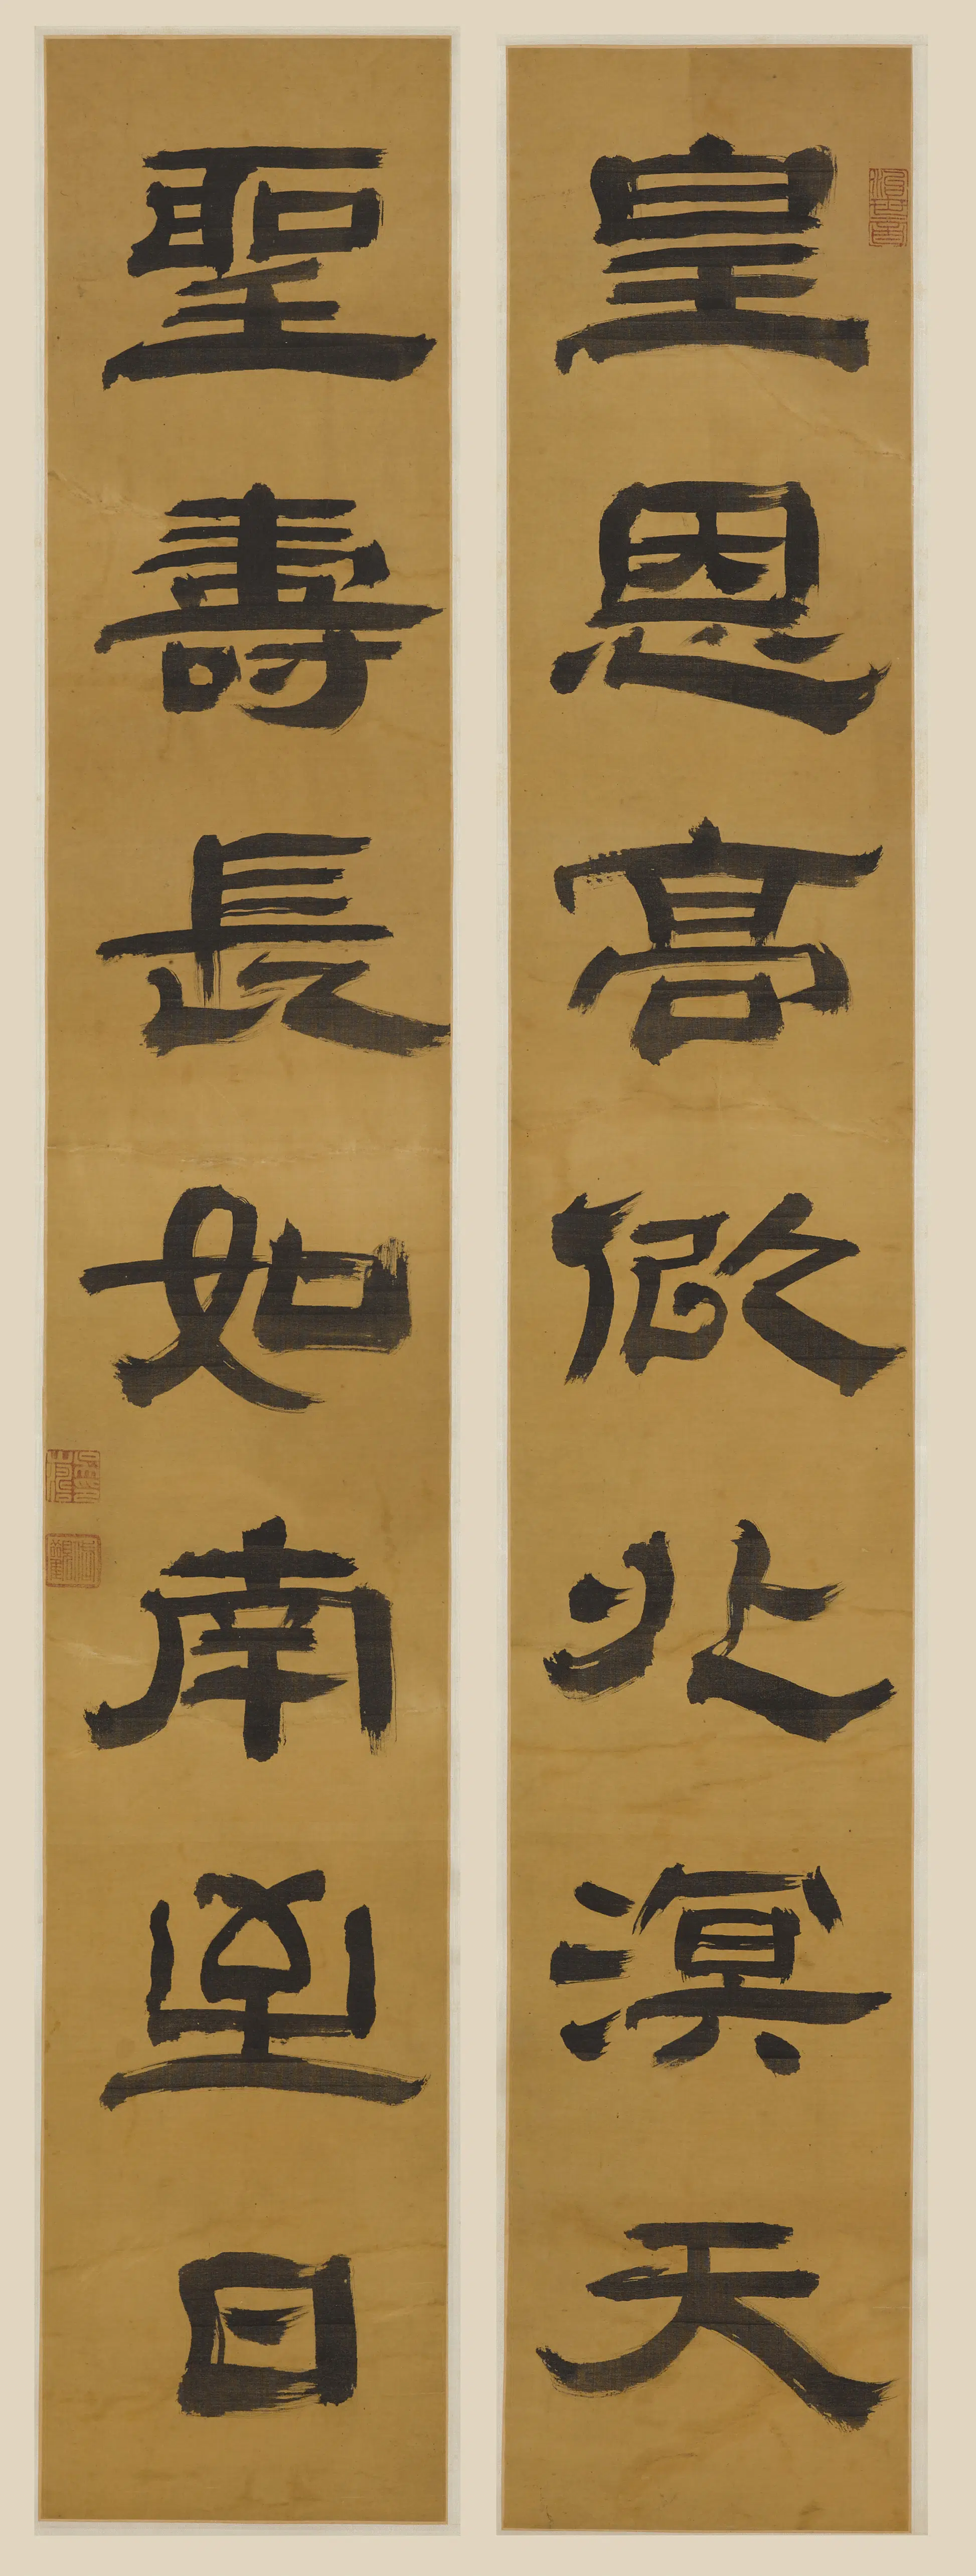 皇恩高似北溟天
聖壽長如南至日